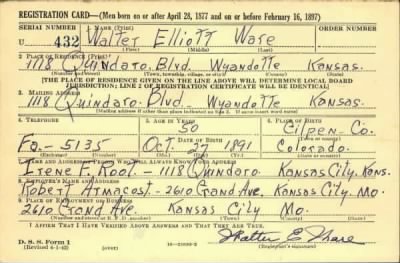 REGISTRATION CARD—(Men born on or after April 28, 1877 and on or before February 16, 1897)
SERIAL NUMBER 1. NAME (Print) ORDER NUMBER
U 432 Walter Elliott Ware
(First) (Middle) (Last)
2. PLACE OF RESIDENCE (Print)
1118 Quindaro. Blvd. Wyandotte Kansas.
(Number and street) (Town, township, village, or city) (County) (State)
[THE PLACE OF RESIDENCE GIVEN ON THE LINE ABOVE WILL DETERMINE LOCAL BOARD
JURISDICTION; LINE 2 OF REGISTRATION CERTIFICATE WILL BE IDENTICAL]
3. MAILING ADDRESS
1118 Quindaro. Blvd. Wyandotte Kansas.
[Mailing address if other than place indicated on line 2. If same insert word same]
4. TELEPHONE 5. AGE IN YEARS 6. PLACE OF BIRTH
50 Gilpen Co.
DATE OF BIRTH
Fa.- 5135 Oct. 27 1891 Colorado.
(Exchange) (Number) (Mo.) (Day) (Yr.) (State or country)
7. NAME AND ADDRESS OF PERSON WHO WILL ALWAYS KNOW YOUR ADDRESS
Irene F. Root - 1118 Quindaro Kansas City, Kans.
8. EMPLOYER'S NAME AND ADDRESS
Robert Atmacost - 2610 Grand Ave. Kansas City Mo.
9. PLACE OF EMPLOYMENT OR BUSINESS
2610 Grand Ave. Kansas City Mo.
(Number and street or R. F. D. number) (Town) (County) (State)
I AFFIRM THAT I HAVE VERIFIED ABOVE ANSWERS AND THAT THEY ARE TRUE.
D. S. S. Form 1
(Revised 4-1-42) (over) Walter E Ware
(Registrant's signature)